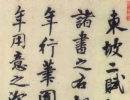 東坡二賦
諸書之右
年行筆圓
年用意之